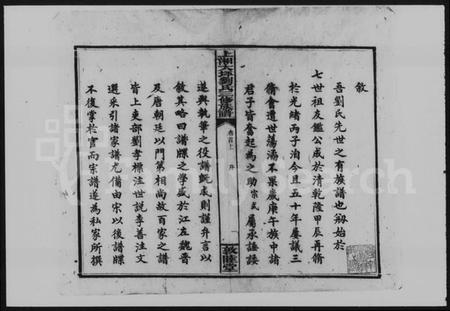 敘
吾劉氏先世之有族譜也剏始於
七世祖友鑑公成於清乾隆甲辰再脩
於光緒丙子洎今且五十年屢議三
脩會遭世蕩潏不果歲庚午族中諸
君子皆奮起為之助宗弍屬承諈諉
上湘大坪劉氏三修族譜
卷首上
序
敘睦堂
遂與執筆之役譜既成則謹弁言以
敘其略曰譜牒之學盛於江左魏晉
及唐朝廷以門第相尚故百家之譜
皆上吏部劉孝標注世說李善注文
選采引諸家譜尤備由宋以後譜牒
不復掌於官而宗譜遂為私家所撰